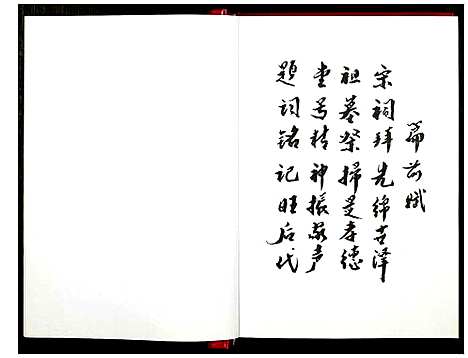 篇前赋
宗祠拜先绵吉泽
祖墓祭扫是孝德
堂号精神振家声
题词铭记旺后代